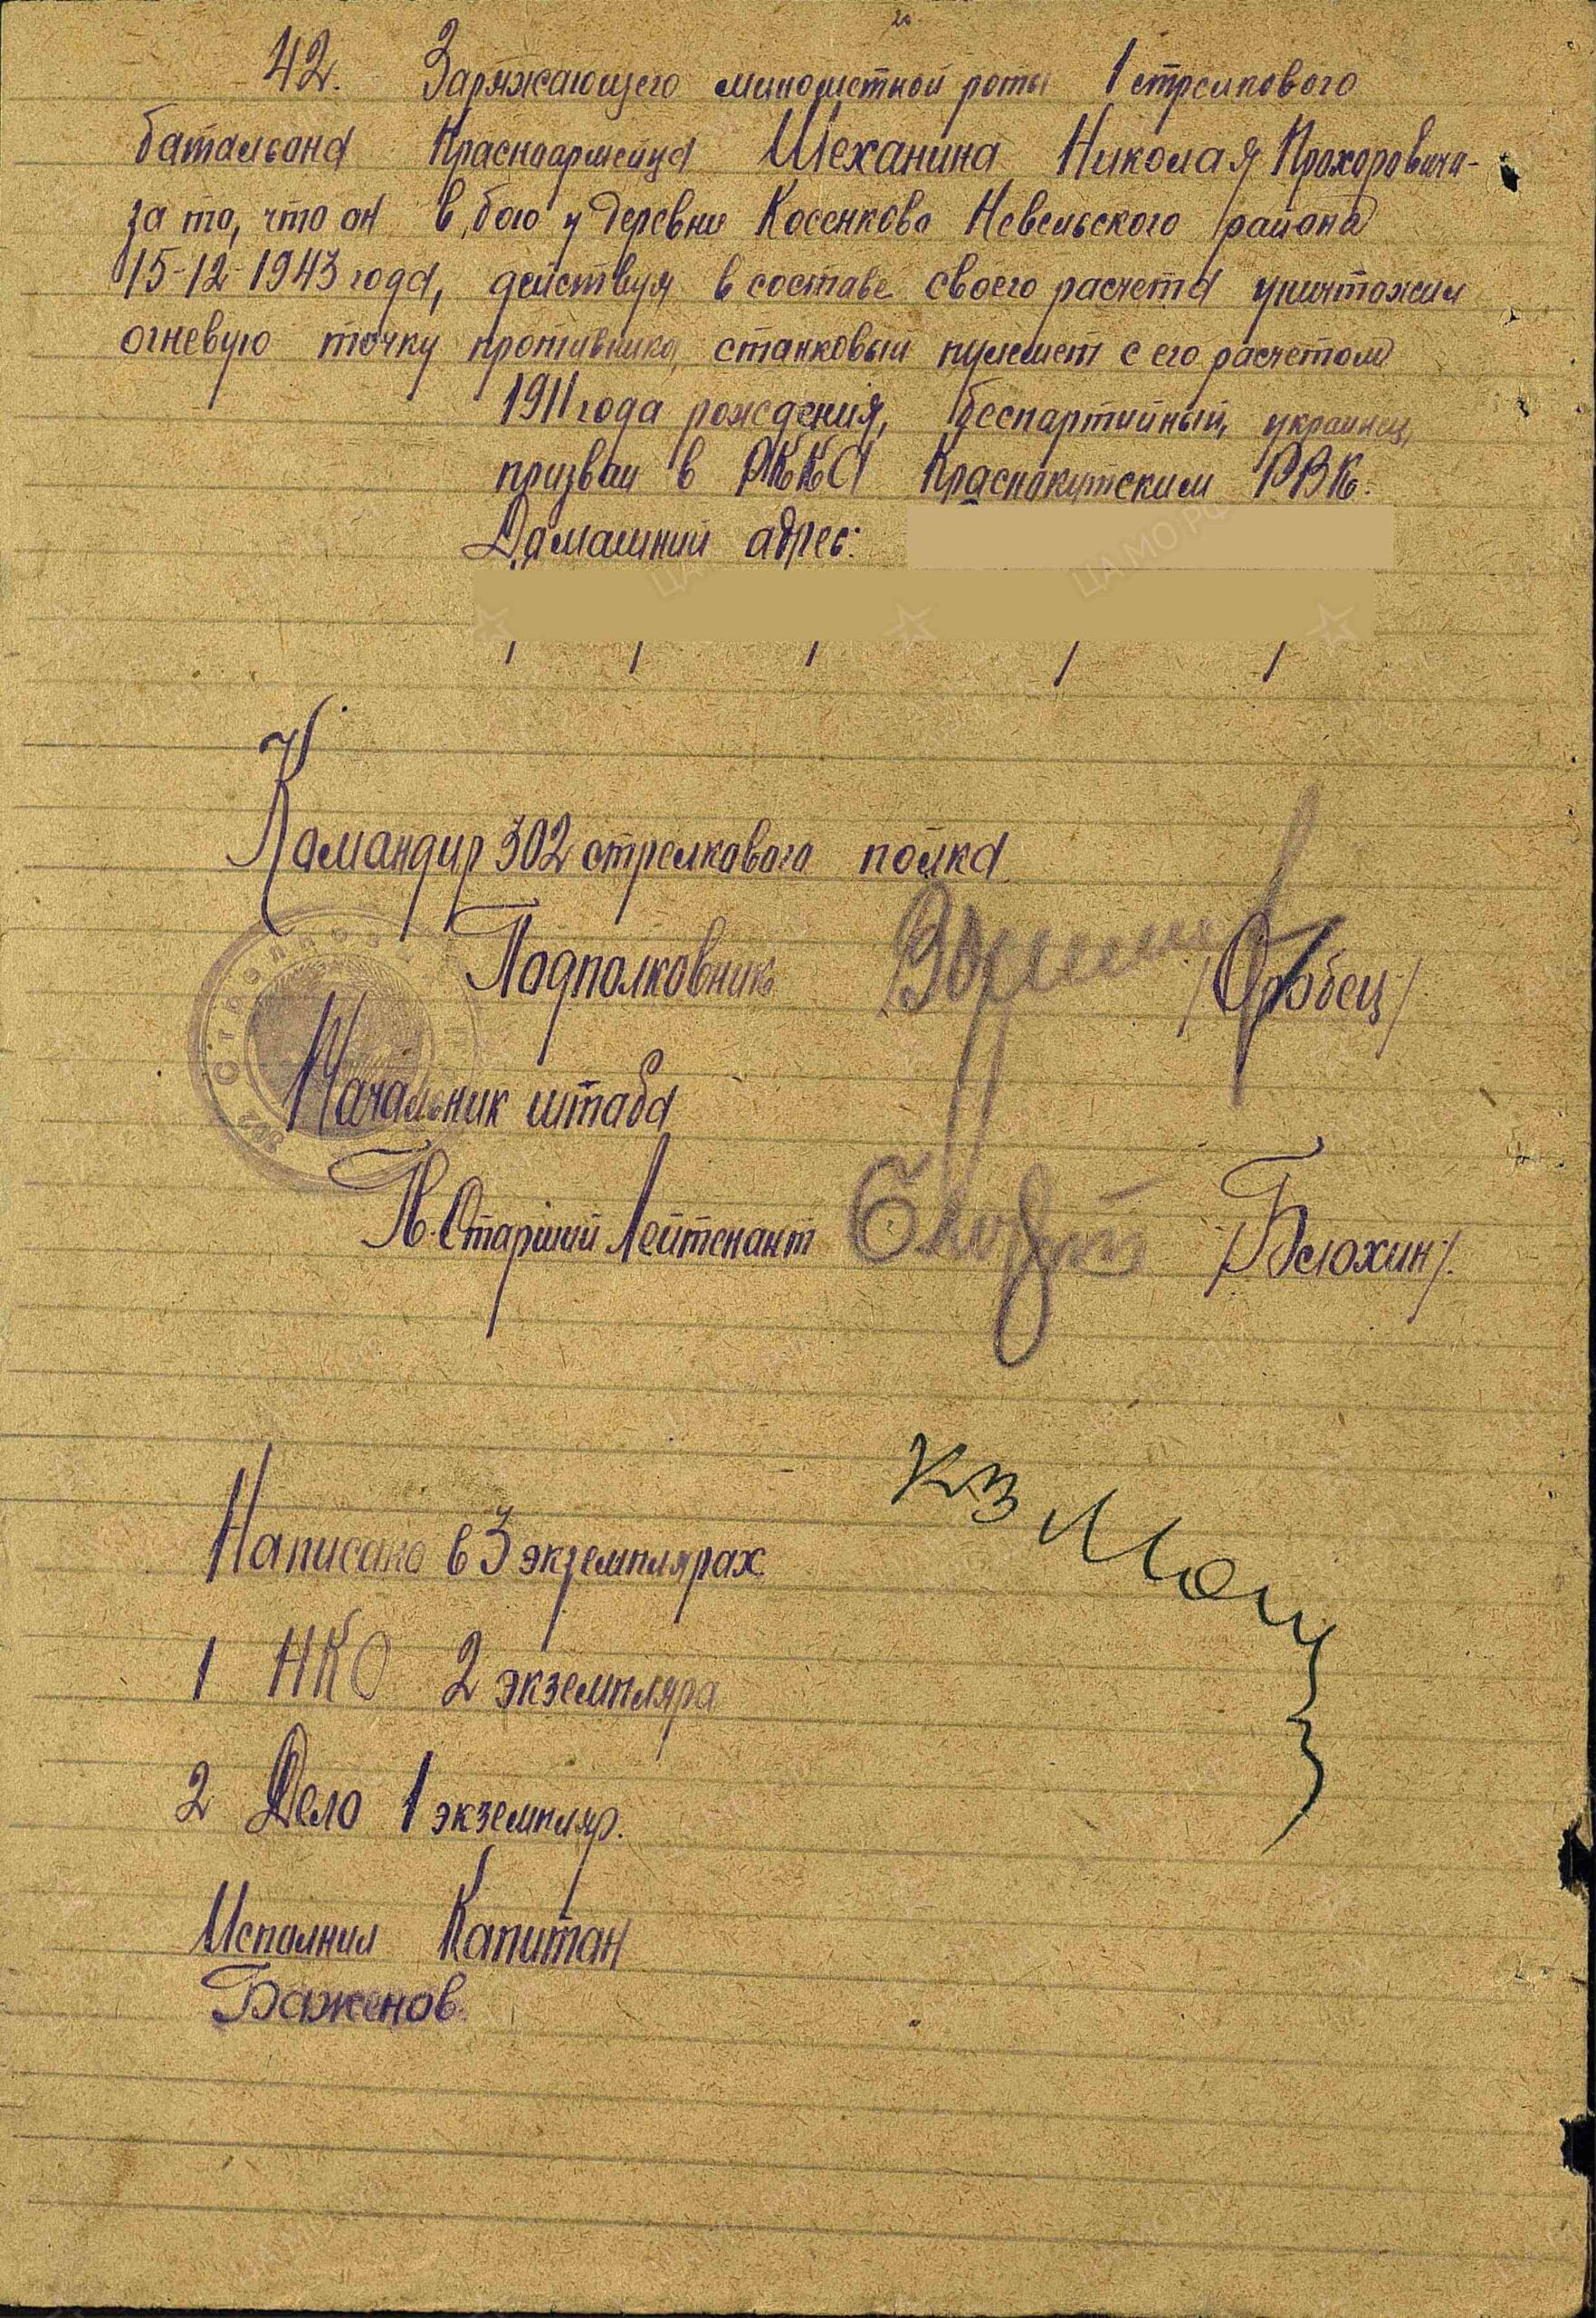 42. Заряжающего минометной роты 1 стрелкового
батальона Красноармейца Шеханина Николая Прохоровича-
за то, что он в бою у деревни Косенково Невельского района
15-12-1943 года, действуя в составе своего расчета уничтожил
огневую точку противника, станковый пулемет с его расчетом
1911 года рождения, беспартийный, украинец,
призван в РККА Краснокутским РВК.
Домашний адрес:
Командир 302 стрелкового полка
Подполковник /Оробец/
Начальник штаба
Гв. Старший Лейтенант /Белохин/.
Написано в 3 экземплярах
1 НКО 2 экземпляра
2 Дело 1 экземпляр.
Исполнил Капитан
Баженов.
302 Стрелков
ЦА МО РФ